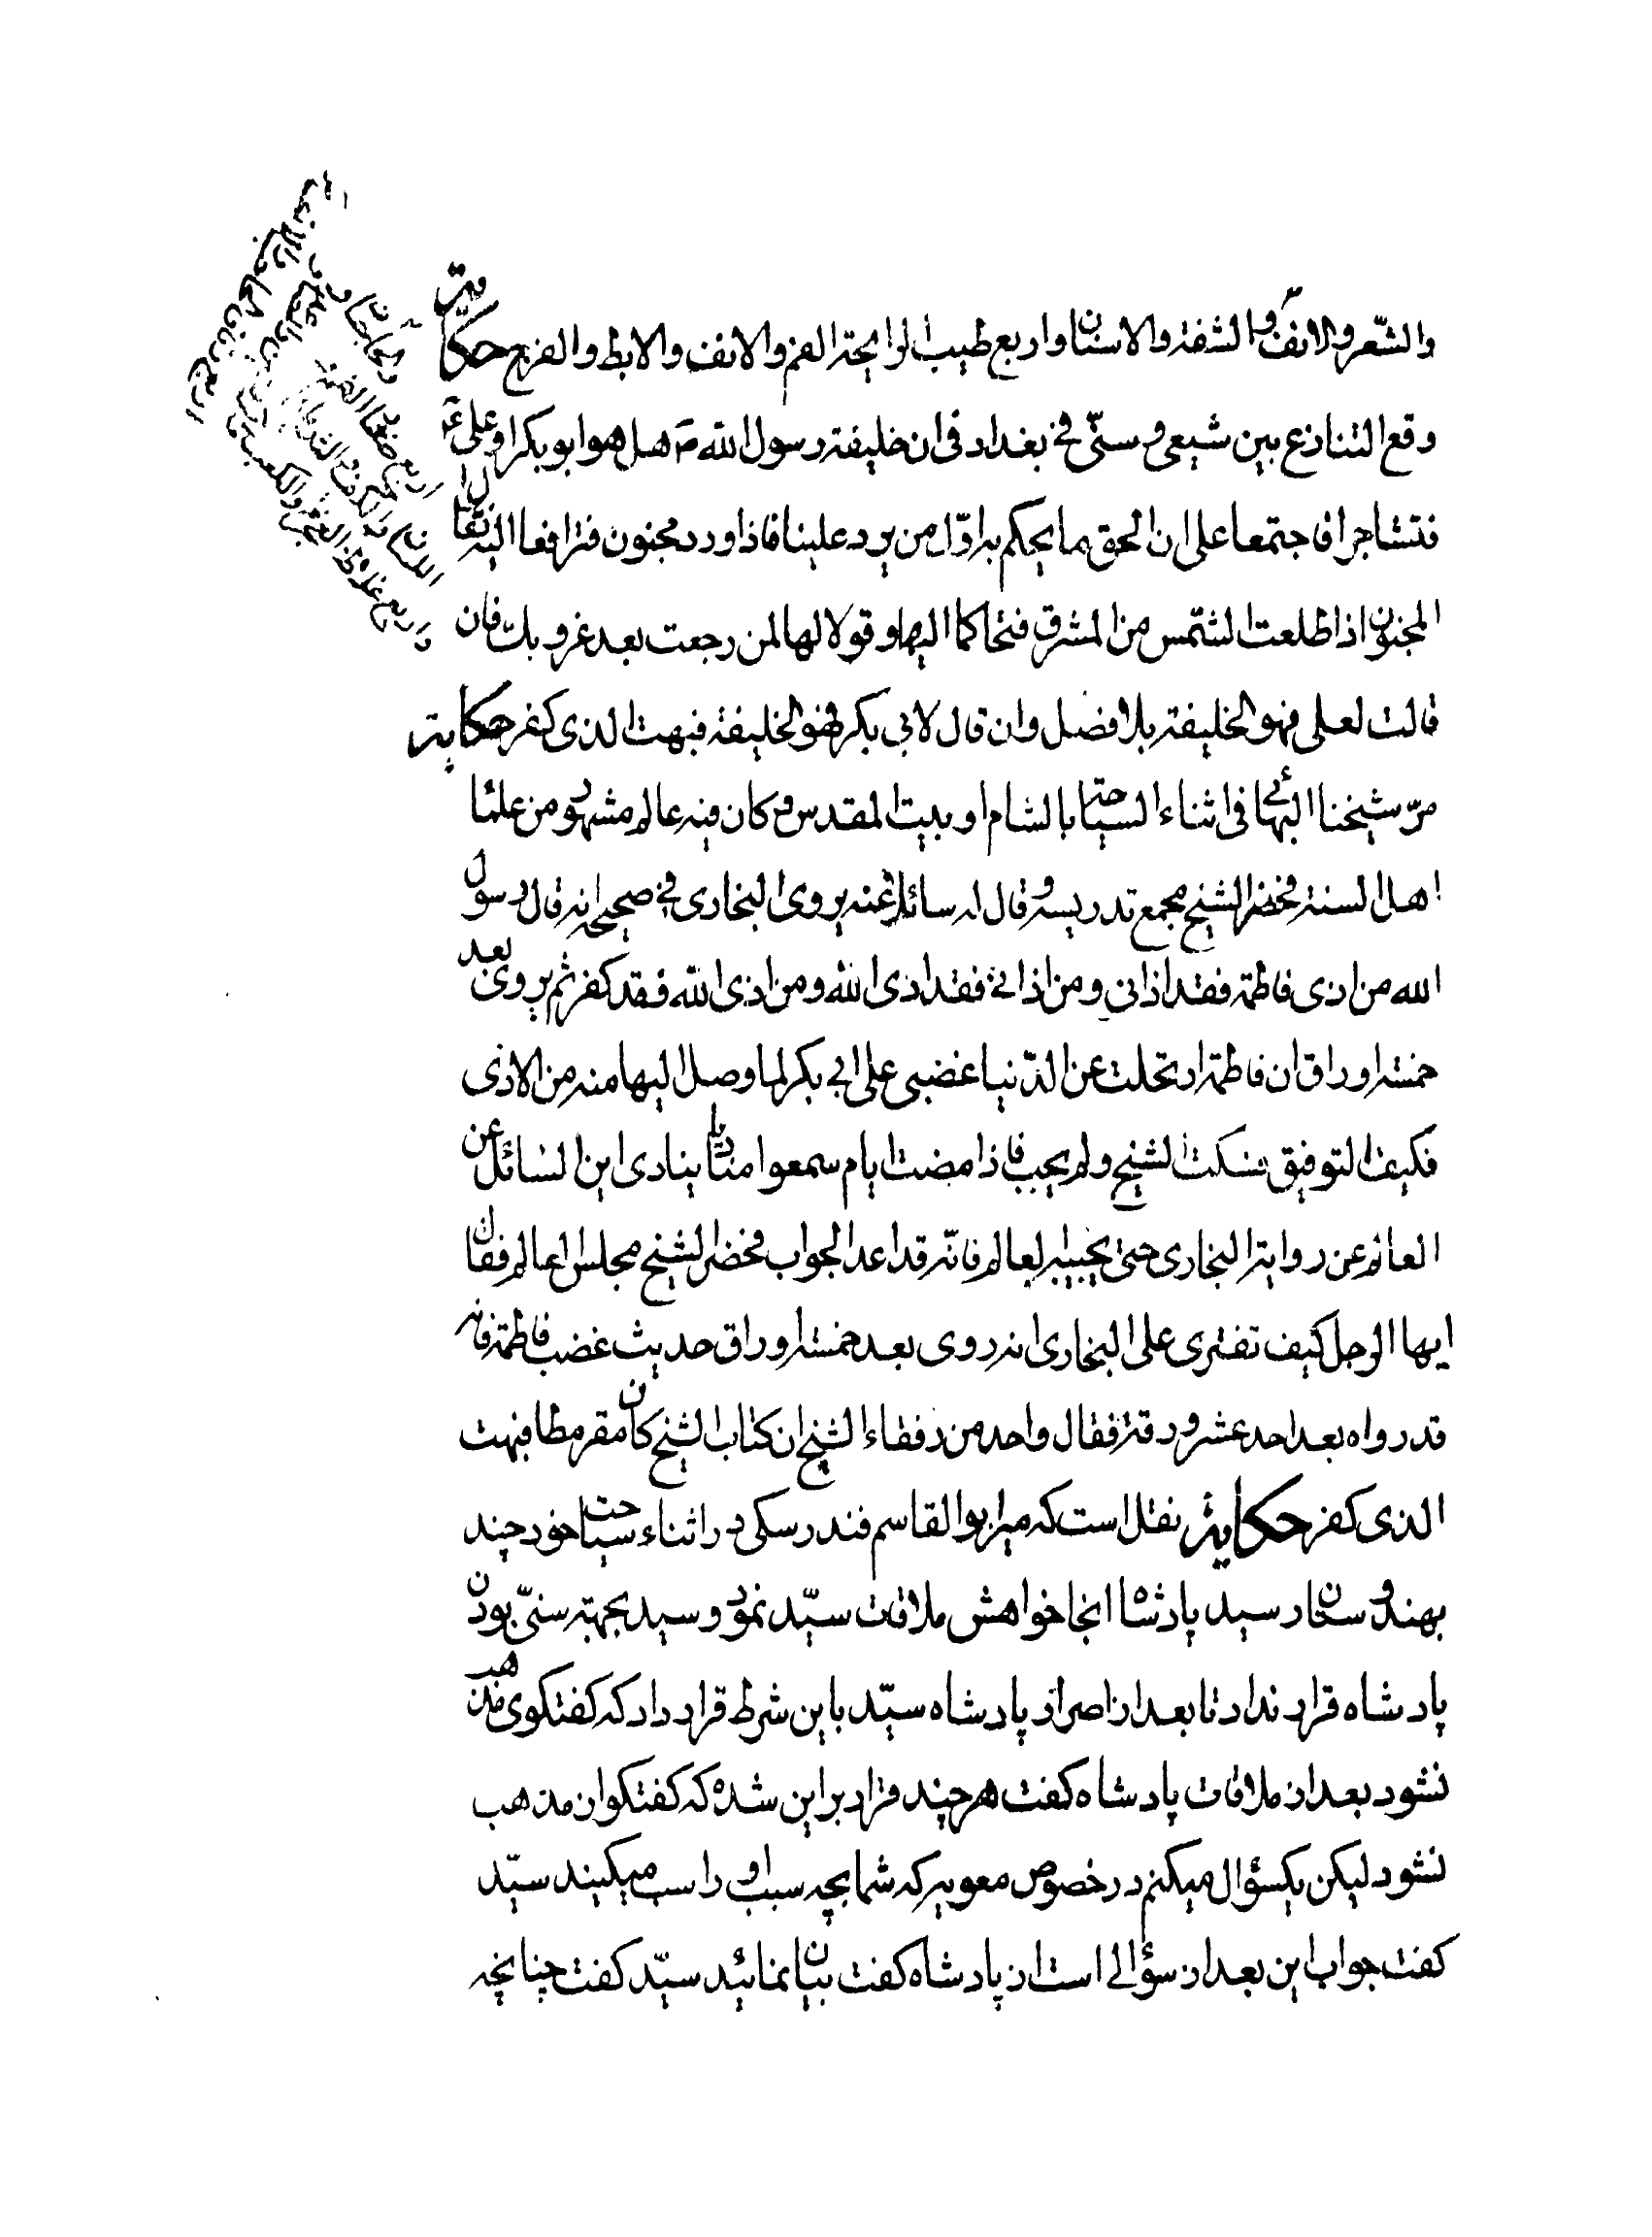 والشّعر والانف والشفة والاسنان واربع طيب الرايحة الفم والانف والابط والفرج حكاية
وقع التنازع بين شيعي وسنّي في بغداد في ان خليفة رسول الله ص هل هو ابو بكر او علي ع
فتشاجرا فاجتمعا على ان الحق ما يحكم به اوّل من يرد علينا فاذا ورد مجنون فترافعا اليه فقال
المجنون اذا طلعت الشمس من المشرق فتحاكما اليها وقولا لها لمن رجعت بعد غروبك فان
قالت لعلي فهو الخليفة بلا فضل وان قال لابي بكر فهو الخليفة فبهت الذي كفر حكاية
مرّ شيخنا البهائي في اثناء السياحة بالشام او بيت المقدس وكان فيه عالم مشهور من علماء
اهل السنة فحضر الشيخ مجمع تدريسه وقال له سائلا عنه يروي البخاري في صحيحه انه قال رسول
الله من اذى فاطمة فقد اذاني ومن اذاني فقد اذى الله ومن اذى الله فقد كفر ثم يروي بعد
خمسة اوراق ان فاطمة ارتحلت عن الدّنيا غضبى على ابي بكر لما وصل اليها منه من الاذى
فكيف التوفيق فسكت الشيخ ولم يجب فاذا مضت ايام سمعوا مناديا ينادي اين السائل عن
العالم عن رواية البخاري حتى يجيبه العالم فانّه قد اعد الجواب فحضر الشيخ مجلس العالم فقال
ايها الرجل كيف تفتري على البخاري انه روى بعد خمسة اوراق حديث غضب فاطمة فانه
قد رواه بعد احد عشر ورقة فقال واحد من رفقاء الشيخ ان كتاب الشيخ كان مقرمطا فبهت
الذي كفر حكاية نقل است كه مير ابو القاسم فندرسكى در اثناء سياحت خود چند
بهندوستان رسيد پادشاه انجا خواهش ملاقات سيّد نمود و سيد بجهته سنّى بودن
پادشاه قرار نداد تا بعد از اصرار پادشاه سيّد باين شرط قرار داد كه كفتكوى مذهب
نشود بعد از ملاقات پادشاه كفت هر چند قرار بر اين شده كه كفتكو از مذهب
نشود ليكن يكسؤال ميكنم در خصوص معويه كه شما بچه سبب او را سب ميكنيد سيّد
كفت جواب اين بعد از سؤالى است از پادشاه كفت بيان نمائيد سيّد كفت چنانچه